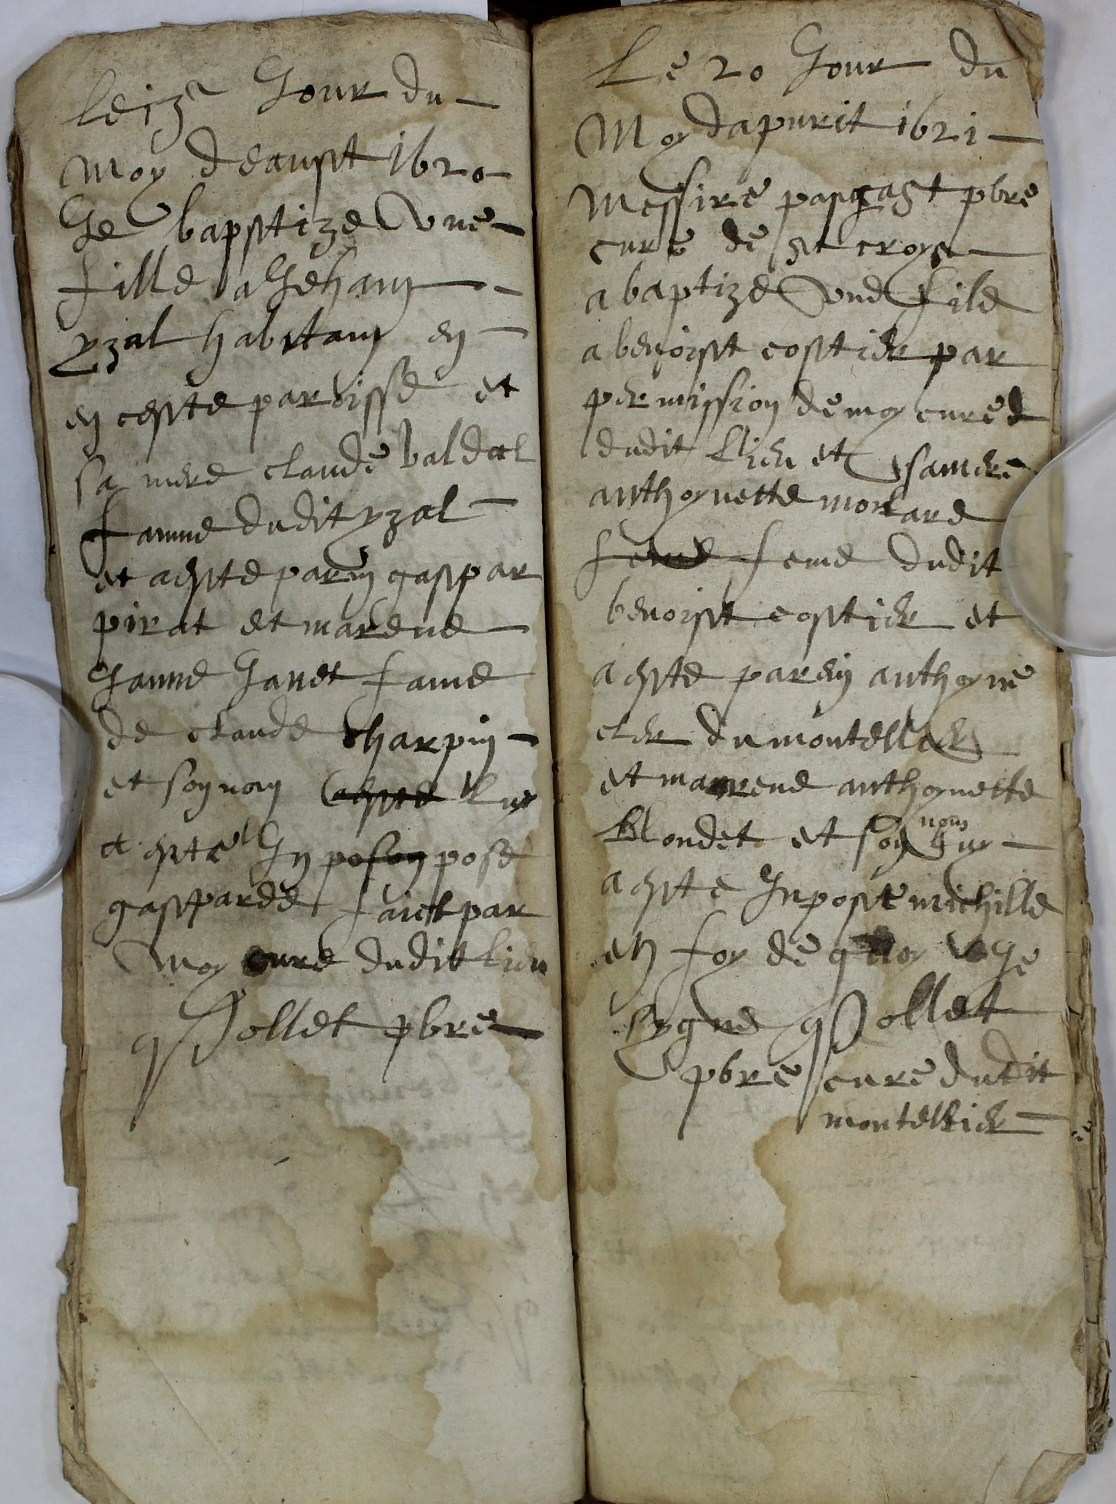 Le 13e Jour du
Moy deaust 1620
Je baptize Vne
fille a Jehan
yzal habitant en
en ceste paroisse et
sa mere claude baldal
famme dudit yzal
et a este parin gaspar
pirat et marene
Janne Janet fame
de claude charpin
et son nom este luy
a este Inposon pose
gasparde faict par
Moy cure dudit lieu
Pollet pbre
Le 20 Jour du
Moy dapurit 1621
Messire pbre
cure de st croys
a baptize Vnd file
a benoist costier par
permission de moy cure d
dudit llieu et sa mere
anthoynette monlard
feme feme dudit
benoist costier et
a este parein anthoyne
cler du montellier
et marene anthoynette
Blondet et son nom luy
a este Inpose michille
en foy de quoy Je
sygne Pollet
pbre cure dudit
montellier